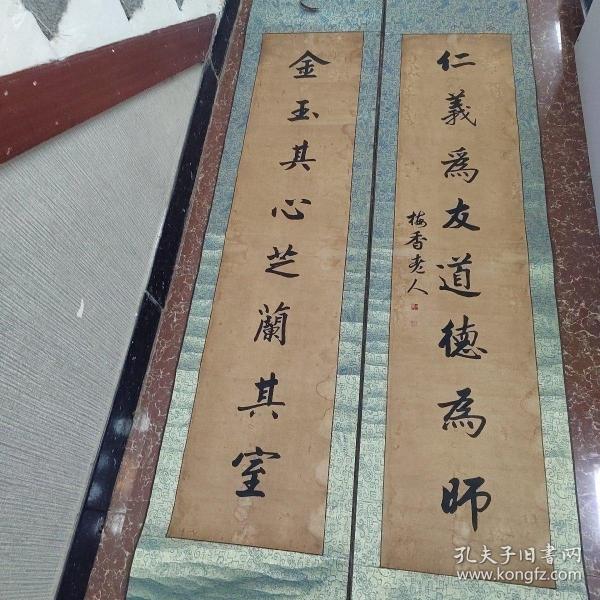 仁義爲友道德為師
梅香老人
金玉其心芝蘭其室
孔夫子旧书网
www.kongfz.com